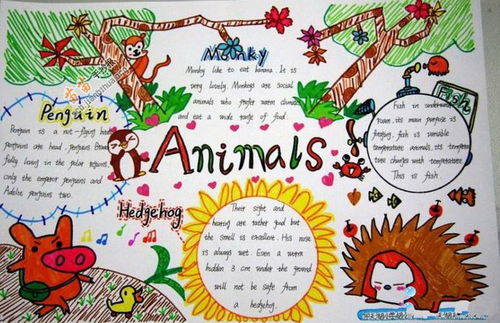 Monky
Monkey like to eat banana. It is
very lovely. Monkeys are social
animals who prefer warm climates
and eat a wide range of food.
Penguin
Penguin is a not-flying bird
penguins are head, penguins
fully living in the polar regions,
only the emperor penguins and
Adelie penguins two.
Animals
Fish
Fish in underwater
foam, its main purpose is
fish is variable
temperature animals, its tempera-
ture changes with temperature
This is fish.
Hedgehog
Their sight and
hearing are rather dull but
the smell is excellent. His nose
is always wet. Even a worm
hidden 3 cm under the ground
will not be safe from
a hedgehog.